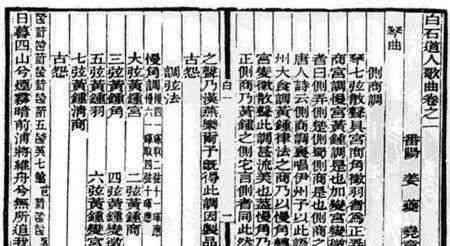 白石道人歌曲卷之一
番陽 姜夔堯章
琴曲
側商調
琴七弦散聲具宮商角徵羽者為正
商宮調慢宮黃鍾調是也加變宮變徵
者曰側弄側楚側蜀側商是也側商
唐人詩云側商調裏唱伊州予以此語
州大食調黃鍾律法之商乃以慢角轉
宮變徵散聲此調甚流美也蓋慢角乃
正側商乃黃鍾之側它言側者同此然
白一
一
之聲乃漢燕樂爾予既得此調因製品
古怨
調弦法
慢角調
大弦黃鍾宮 二弦黃鍾商
三弦黃鍾角 四弦黃鍾變徵
五弦黃鍾羽 六弦黃鍾變宮
七弦黃鍾清商
古怨
日暮四山兮煙霧暗前浦將維舟兮無所追我